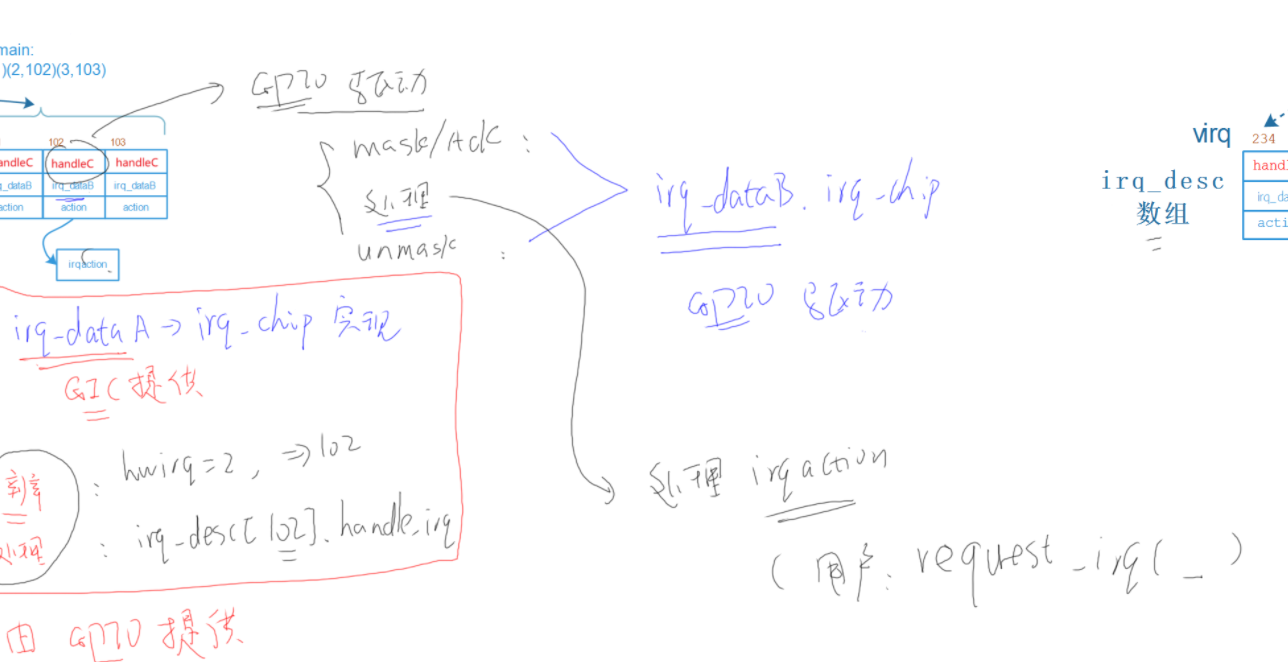 main:
)(2,102)(3,103)
102 103
andleC handleC handleC
q_dataB irq_dataB irq_dataB
action action action
irqaction
GPIO 驱动
mask/Ack :
处理
unmask :
irq_dataB. irq_chip
GPIO 驱动
virq 234
irq_desc
数组
handl
irq_da
acti
irq_data A → irq_chip 实现
GIC 提供
分辨 : hwirq=2, ⇒102
处理 : irq_desc[102].handle_irq
由 GPIO 提供
处理 irqaction
(用户: request_irq( _ )